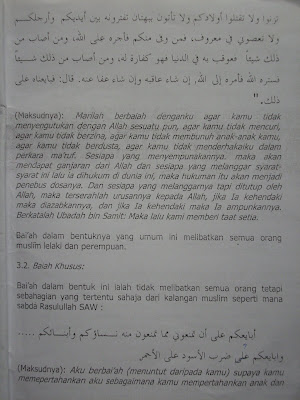 تزنوا ولا تقتلوا أولادكم ولا تأتون ببهتان تفترونه بين أيديكم وأرجلكم
ولا تعصوني في معروف، فمن وفى منكم فأجره على الله، ومن أصاب من
ذلك شيئاً فعوقب به في الدنيا فهو كفارة له، ومن أصاب من ذلك شيئاً
فستره الله فأمره إلى الله، إن شاء عاقبه وإن شاء عفا عنه. قال: فبايعناه على
ذلك."
(Maksudnya): Marilah berbaiah denganku agar kamu tidak
menyengutukan dengan Allah sesuatu pun, agar kamu tidak mencuri,
agar kamu tidak berzina, agar kamu tidak membunuh anak-anak kamu,
agar kamu tidak berdusta, agar kamu tidak menderhakaiku dalam
perkara ma'ruf. Sesiapa yang menyempunakannya. maka akan
mendapat ganjaran dari Allah dan sesiapa yang melanggar syarat-
syarat ini lalu ia dihukum di dunia ini, maka hukuman itu akan menjadi
penebus dosanya. Dan sesiapa yang melanggarnya tapi ditutup oleh
Allah, maka terserahlah urusannya kepada Allah, jika Ia kehendaki
maka Ia diazabkannya, dan jika Ia kehendaki maka Ia ampunikannya.
Berkatalah Ubadah bin Samit: Maka lalu kami memberi taat setia.
Bai'ah dalam bentuknya yang umum ini melibatkan semua orang
muslim lelaki dan perempuan.
3.2. Baiah Khusus:
Bai'ah dalam bentuk ini ialah tidak melibatkan semua orang tetapi
sebahagian yang tertentu sahaja dari kalangan muslim seperti mana
sabda Rasulullah SAW :
أبايعكم على أن تمنعوني مما تمنعون منه نساؤكم وأبنائكم .....
وأبايعكم على ضرب الأسود على الأحمر
(Maksudnya): Aku berbai'ah (menuntut daripada kamu) supaya kamu
memepertahankan aku sebagaimana kamu mempertahankan anak dan